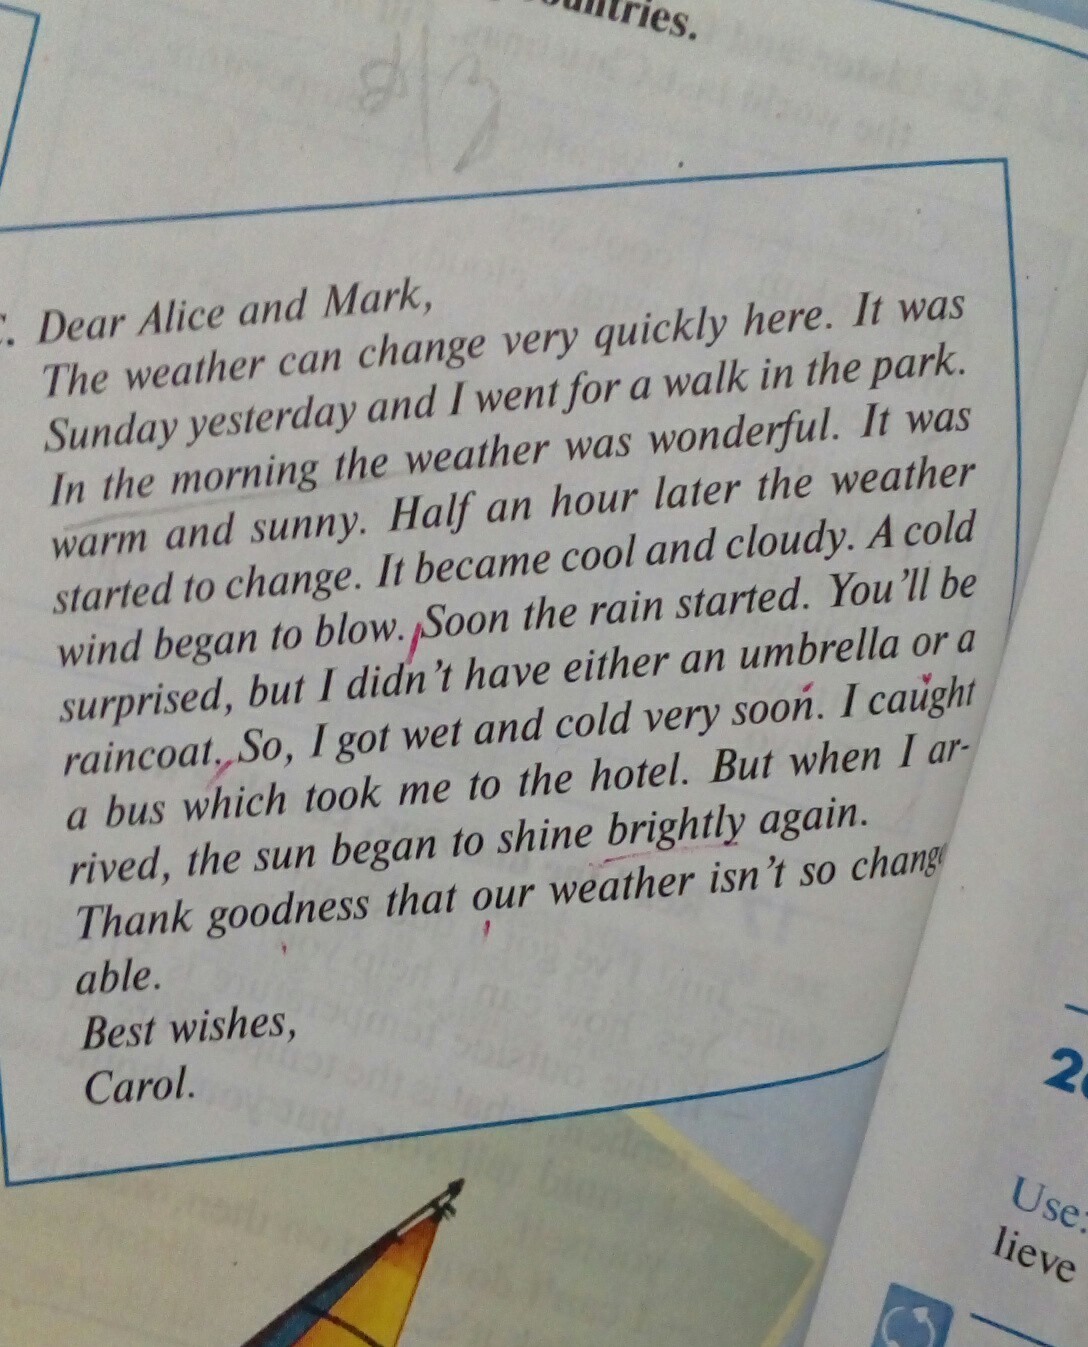 C. Dear Alice and Mark,
The weather can change very quickly here. It was
Sunday yesterday and I went for a walk in the park.
In the morning the weather was wonderful. It was
warm and sunny. Half an hour later the weather
started to change. It became cool and cloudy. A cold
wind began to blow. Soon the rain started. You'll be
surprised, but I didn't have either an umbrella or a
raincoat. So, I got wet and cold very soon. I caught
a bus which took me to the hotel. But when I ar-
rived, the sun began to shine brightly again.
Thank goodness that our weather isn't so change
able.
Best wishes,
Carol.
Use:
lieve